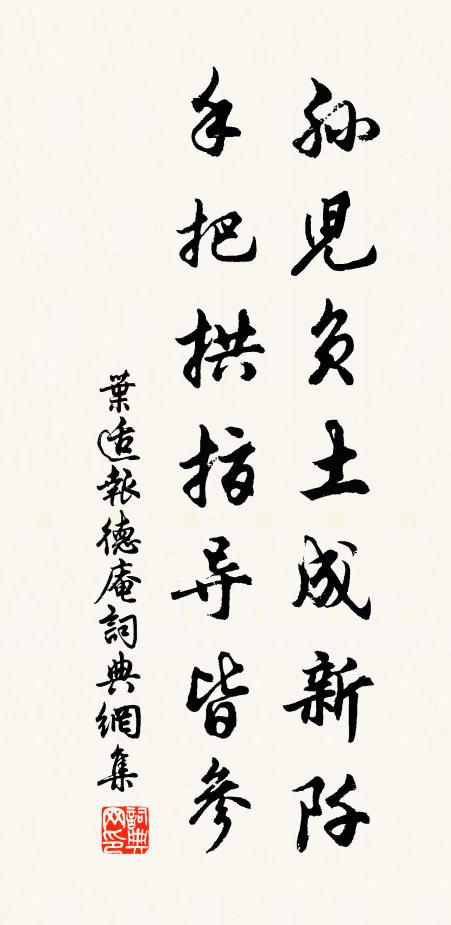 孙児负土成新阡
手把拱指导皆参
葉适報德庵詞典網集
詞典网印